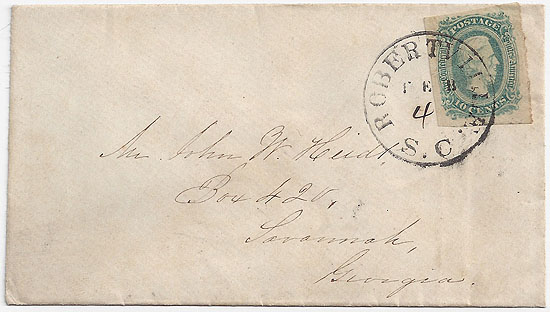 POSTAGE
10 CENTS
ROBERTVILLE
FEB
4
S.C.
Mr John W. Heidt,
Box 420,
Savannah,
Georgia.